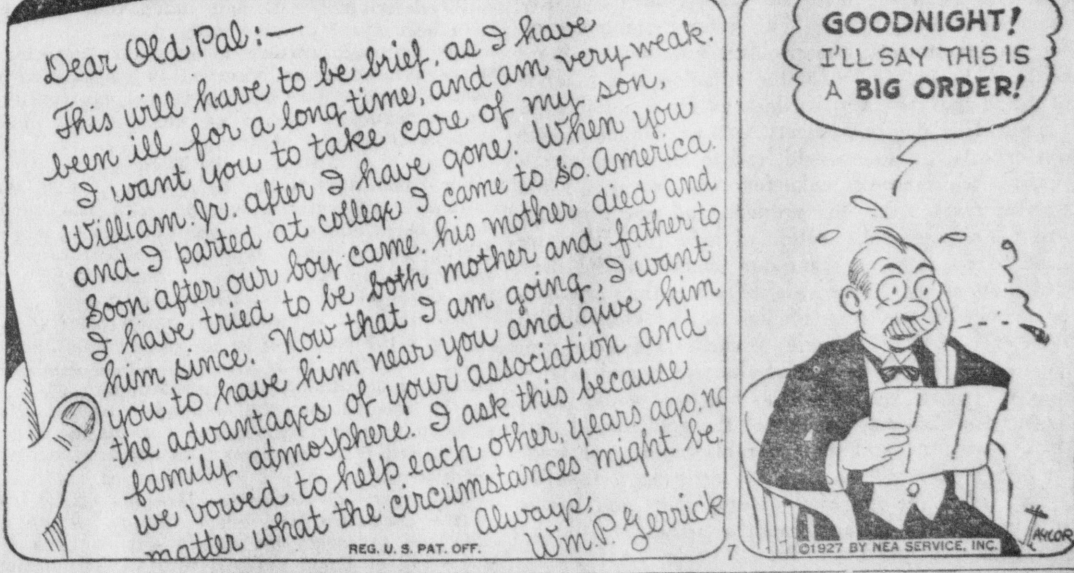 Dear Old Pal:—
This will have to be brief, as I have
been ill for a long time, and am very weak.
I want you to take care of my son,
William Jr. after I have gone. When you
and I parted at college I came to So. America.
Soon after our boy came, his mother died and
I have tried to be both mother and father to
him since. Now that I am going, I want
you to have him near you and give him
the advantages of your association and
family atmosphere. I ask this because
we vowed to help each other, years ago, no
matter what the circumstances might be.
Always,
Wm. P. Gerrick
REG. U. S. PAT. OFF.
7
GOODNIGHT!
I'LL SAY THIS IS
A BIG ORDER!
©1927 BY NEA SERVICE, INC.
TAYLOR